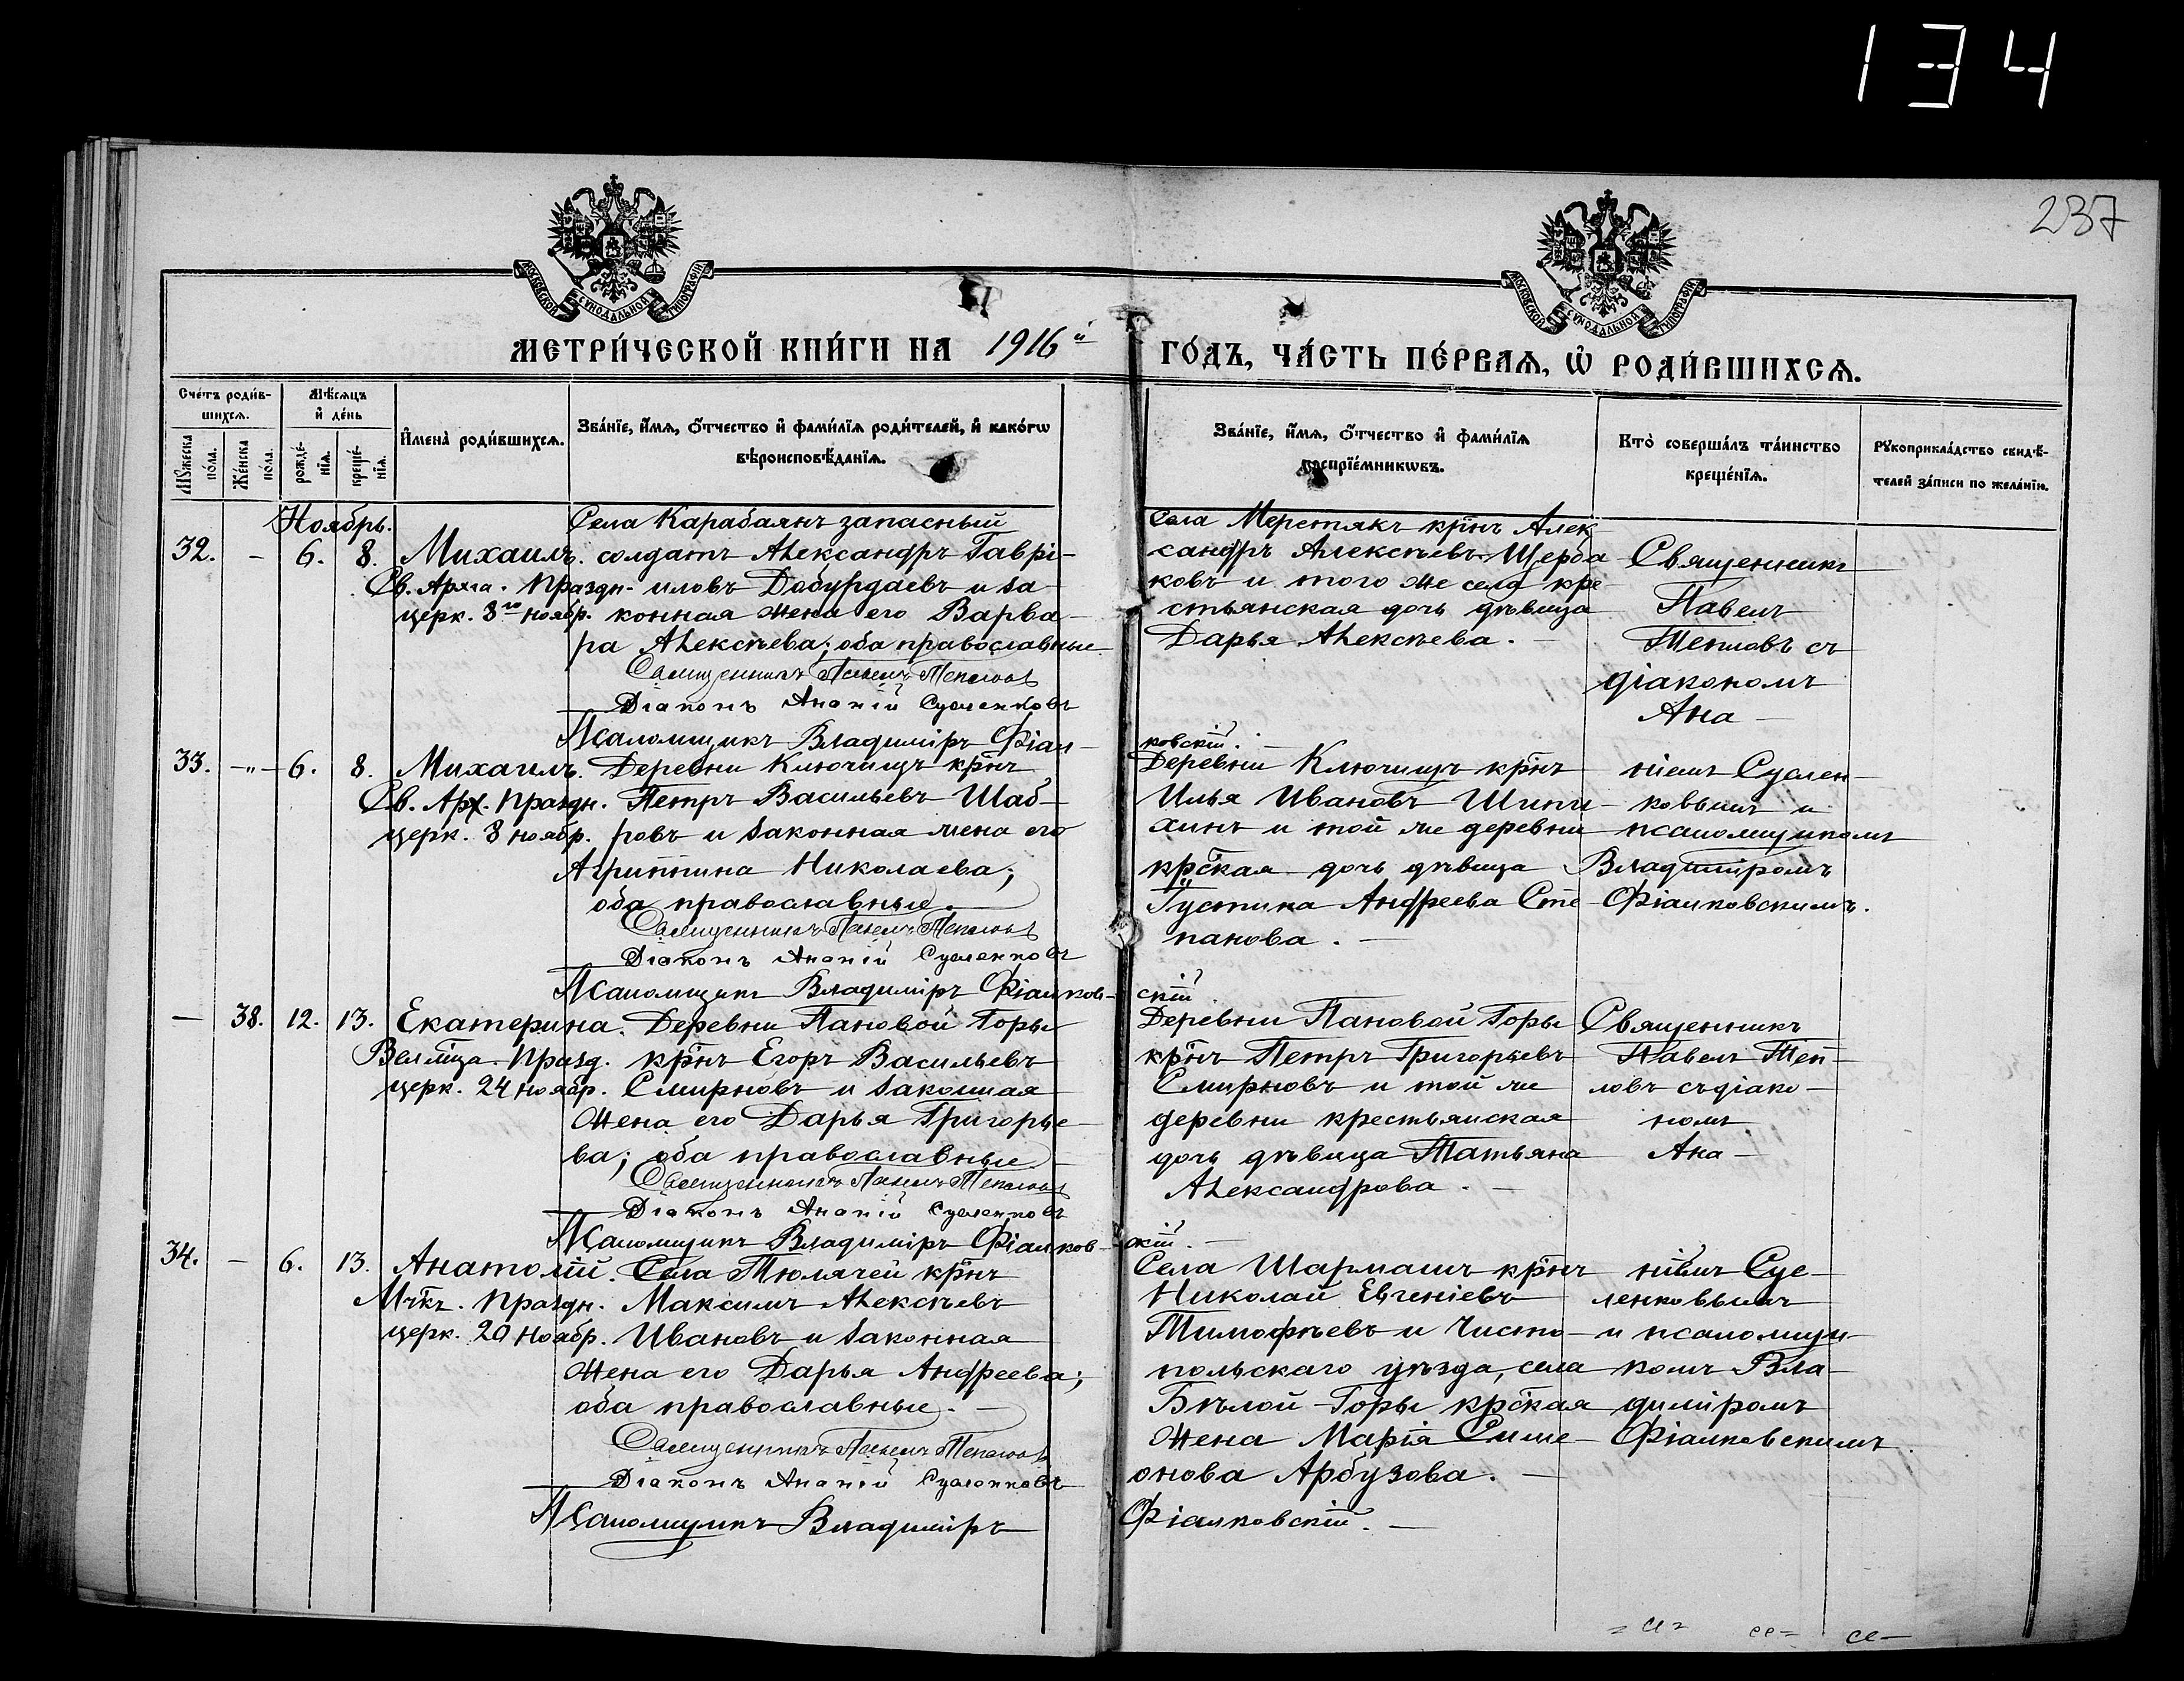 134
237
МОСКОВСКОЙ СѴНОДАЛЬНОЙ ТИПОГРАФІИ
МОСКОВСКОЙ СѴНОДАЛЬНОЙ ТИПОГРАФІИ
МЕТРИ́ЧЕСКОЙ КНИ́ГИ НА 1916й ГО́ДЪ, ЧА́СТЬ ПЕ́РВАѦ, Ѿ РОДИ́ВШИХСѦ.
Счетъ роди́в-
шихсѧ.
Мꙋжеска по́ла.
Же́нска по́ла.
Мѣ́сѧцъ
и҆ де́нь
рожде́-
нїѧ.
креще́-
нїѧ.
И҆мена̀ роди́вшихсѧ.
Зва́нїе, и҆́мѧ, ѻ҆́тчество и҆ фами́лїѧ роди́телей, и҆ како́гѡ
вѣроисповѣ́данїѧ.
Зва́нїе, и҆́мѧ, ѻ҆́тчество и҆ фами́лїѧ
воспрїе́мникѡвъ.
Кто̀ соверша́лъ та́инство
креще́нїѧ.
Рꙋкоприкла́дство свидѣ́-
телей за́писи по жела́нїю.
Ноябрь.
32. — 6. 8. Михаилъ.
Св. Арха. Праздн.
церк. 8го ноябр.
Села Карабаянъ запасный
солдатъ Александръ Гаврі-
иловъ Добурдаевъ и за-
конная жена его Варва-
ра Алексѣева; оба православные.
Священникъ Павелъ Тепловъ
Діаконъ Ананій Сусленковъ
Псаломщикъ Владиміръ Фіал-
ковскій. —
Села Мерстякъ кр̃нъ Алек
сандръ Алексѣевъ Щерба
ковъ и того же села кре
стьянская дочь дѣвица
Дарья Алексѣева. —
Священникъ
Павелъ
Тепловъ съ
діакономъ
Ана —
33. —"— 6. 8. Михаилъ.
Св. Арх. Праздн.
церк. 8 ноябр.
Деревни Ключищъ кр̃нъ
Петръ Васильевъ Шаб-
ровъ и законная жена его
Агриппина Николаева;
оба православные. —
Священникъ Павелъ Тепловъ
Діаконъ Ананій Сусленковъ
Псаломщикъ Владиміръ Фіалков-
скій
Деревни Ключищъ кр̃нъ
Илья Ивановъ Шипи-
хинъ и той же деревни
кр̃ская дочь дѣвица
Густина Андреева Сте
панова. —
ніемъ Суслен-
ковымъ и
псаломщикомъ
Владиміромъ
Фіалковскимъ.
— 38. 12. 13. Екатерина.
Велмца. Празд.
церк. 24 ноябр.
Деревни Пановой Горы
кр̃нъ Егоръ Васильевъ
Смирновъ и законная
жена его Дарья Григорье-
ва; оба православные —
Священникъ Павелъ Тепловъ
Діаконъ Ананій Сусленковъ
Псаломщикъ Владиміръ Фіалков-
скій. —
Деревни Пановой Горы
кр̃нъ Петръ Григорьевъ
Смирновъ и той же
деревни крестьянская
дочь дѣвица Татьяна
Александрова. —
Священникъ
Павелъ Теп-
ловъ съ діако-
номъ
Ана —
34. — 6. 13. Анатолій.
Мч̃къ. Праздн.
церк. 20 ноябр.
Села Тюлячей кр̃нъ
Максимъ Алексѣевъ
Ивановъ и законная
жена его Дарья Андреева;
оба православные. —
Священникъ Павелъ Тепловъ
Діаконъ Ананій Сусленковъ
Псаломщикъ Владиміръ
Фіалковскій. —
Села Шармашъ кр̃нъ
Николай Евгеніевъ
Тимофѣевъ и Чисто-
польскаго уѣзда, села
Бѣлой-Горы кр̃ская
жена Марія Симе-
онова Арбузова. —
ніемъ Сус-
ленковымъ
и псаломщи-
комъ Вла-
диміромъ
Фіалковскимъ.